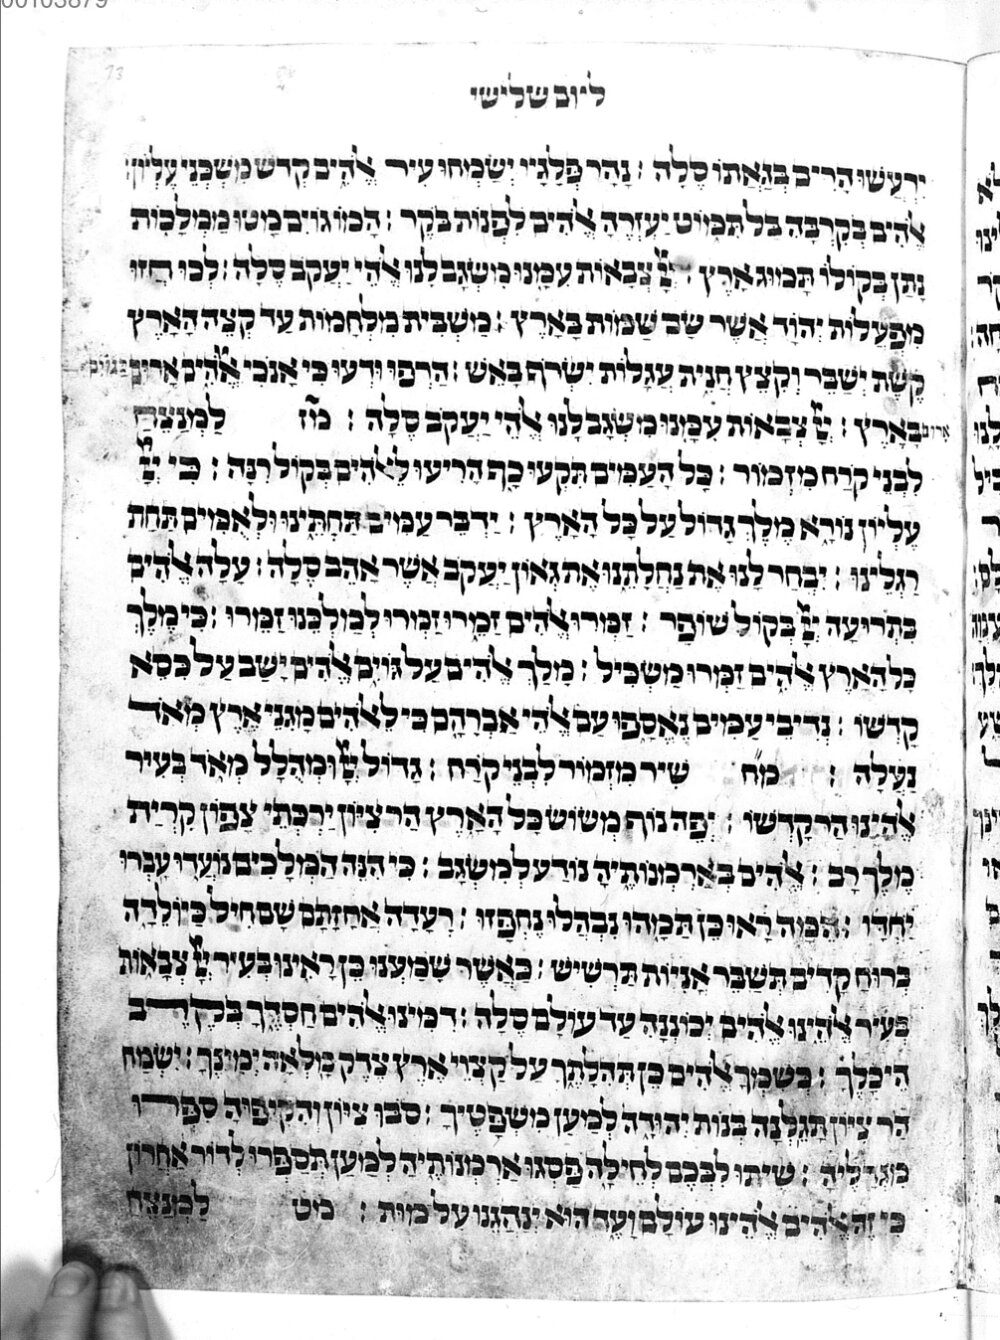 00103879
73
ליום שלישי
ירעשו הרים בגאותו סלה : נהר פלגיו ישמחו עיר אלהים קדש משכני עליון :
אלהים בקרבה בל תמוט יעזרה אלהים לפנות בקר : המו גוים מטו ממלכות
נתן בקולו תמוג ארץ : צבאות עמנו משגב לנו אלהי יעקב סלה : לכו חזו
מפעלות יהוה אשר שם שמות בארץ : משבית מלחמות עד קצה הארץ
קשת ישבר וקצץ חנית עגלות ישרוף באש : הרפו ודעו כי אנכי אלהים ארום בגוים
ארום בארץ : צבאות עמנו משגב לנו אלהי יעקב סלה : מז למנצח
לבני קרח מזמור : כל העמים תקעו כף הריעו לאלהים בקול רנה : כי
עליון נורא מלך גדול על כל הארץ : ידבר עמים תחתינו ולאמים תחת
רגלינו : יבחר לנו את נחלתנו את גאון יעקב אשר אהב סלה : עלה אלהים
בתרועה בקול שופר : זמרו אלהים זמרו זמרו למלכנו זמרו : כי מלך
כל הארץ אלהים זמרו משכיל : מלך אלהים על גוים אלהים ישב על כסא
קדשו : נדיבי עמים נאספו עם אלהי אברהם כי לאלהים מגני ארץ מאד
נעלה : מח שיר מזמור לבני קרח : גדול ומהלל מאד בעיר
אלהינו הר קדשו : יפה נוף משוש כל הארץ הר ציון ירכתי צפון קרית
מלך רב : אלהים בארמנותיה נודע למשגב : כי הנה המלכים נועדו עברו
יחדו : המה ראו כן תמהו נבהלו נחפזו : רעדה אחזתם שם חיל כיולדה
ברוח קדים תשבר אניות תרשיש : כאשר שמענו כן ראינו בעיר צבאות
בעיר אלהינו אלהים יכוננה עד עולם סלה : דמינו אלהים חסדך בקרב
היכלך : כשמך אלהים כן תהלתך על קצוי ארץ צדק מלאה ימינך : ישמח
הר ציון תגלנה בנות יהודה למען משפטיך : סבו ציון והקיפוה ספרו
מגדליה : שיתו לבכם לחילה פסגו ארמנותיה למען תספרו לדור אחרון
כי זה אלהים אלהינו עולם ועד הוא ינהגנו על מות : מט למנצח